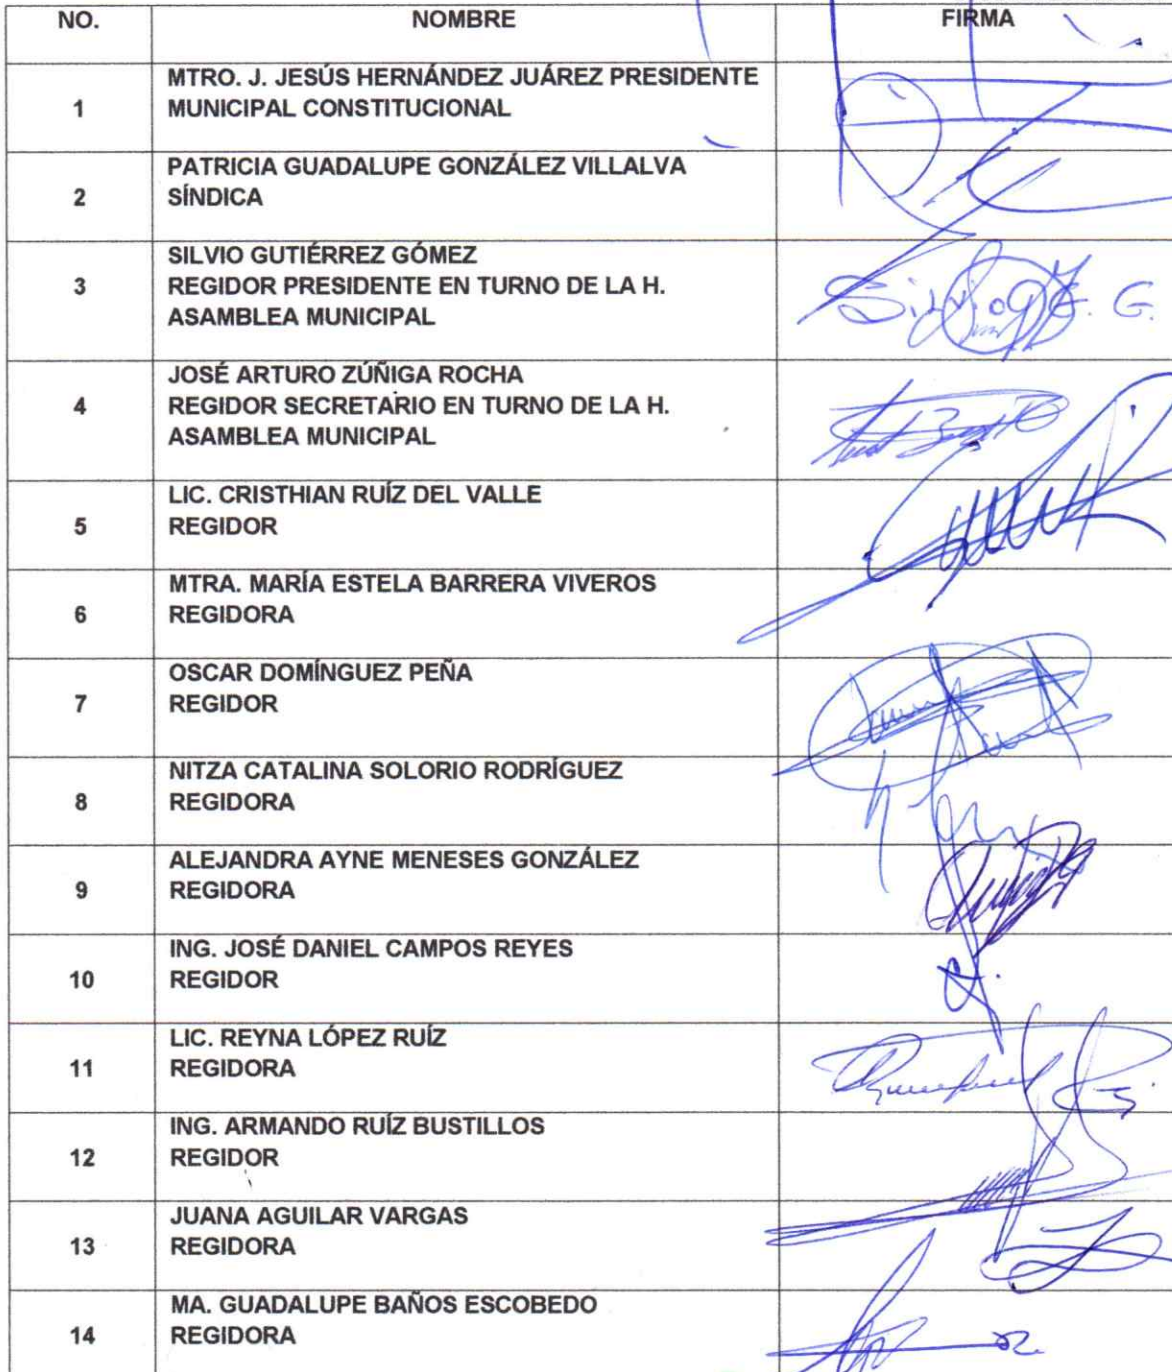 NO. NOMBRE FIRMA
MTRO. J. JESÚS HERNÁNDEZ JUÁREZ PRESIDENTE
1 MUNICIPAL CONSTITUCIONAL
PATRICIA GUADALUPE GONZÁLEZ VILLALVA
2 SÍNDICA
SILVIO GUTIÉRREZ GÓMEZ
3 REGIDOR PRESIDENTE EN TURNO DE LA H. Silvio G. G.
ASAMBLEA MUNICIPAL
JOSÉ ARTURO ZÚÑIGA ROCHA
4 REGIDOR SECRETARIO EN TURNO DE LA H.
ASAMBLEA MUNICIPAL
LIC. CRISTHIAN RUÍZ DEL VALLE
5 REGIDOR
MTRA. MARÍA ESTELA BARRERA VIVEROS
6 REGIDORA
OSCAR DOMÍNGUEZ PEÑA
7 REGIDOR
NITZA CATALINA SOLORIO RODRÍGUEZ
8 REGIDORA
ALEJANDRA AYNE MENESES GONZÁLEZ
9 REGIDORA
ING. JOSÉ DANIEL CAMPOS REYES
10 REGIDOR
LIC. REYNA LÓPEZ RUÍZ
11 REGIDORA
ING. ARMANDO RUÍZ BUSTILLOS
12 REGIDOR
JUANA AGUILAR VARGAS
13 REGIDORA
MA. GUADALUPE BAÑOS ESCOBEDO
14 REGIDORA